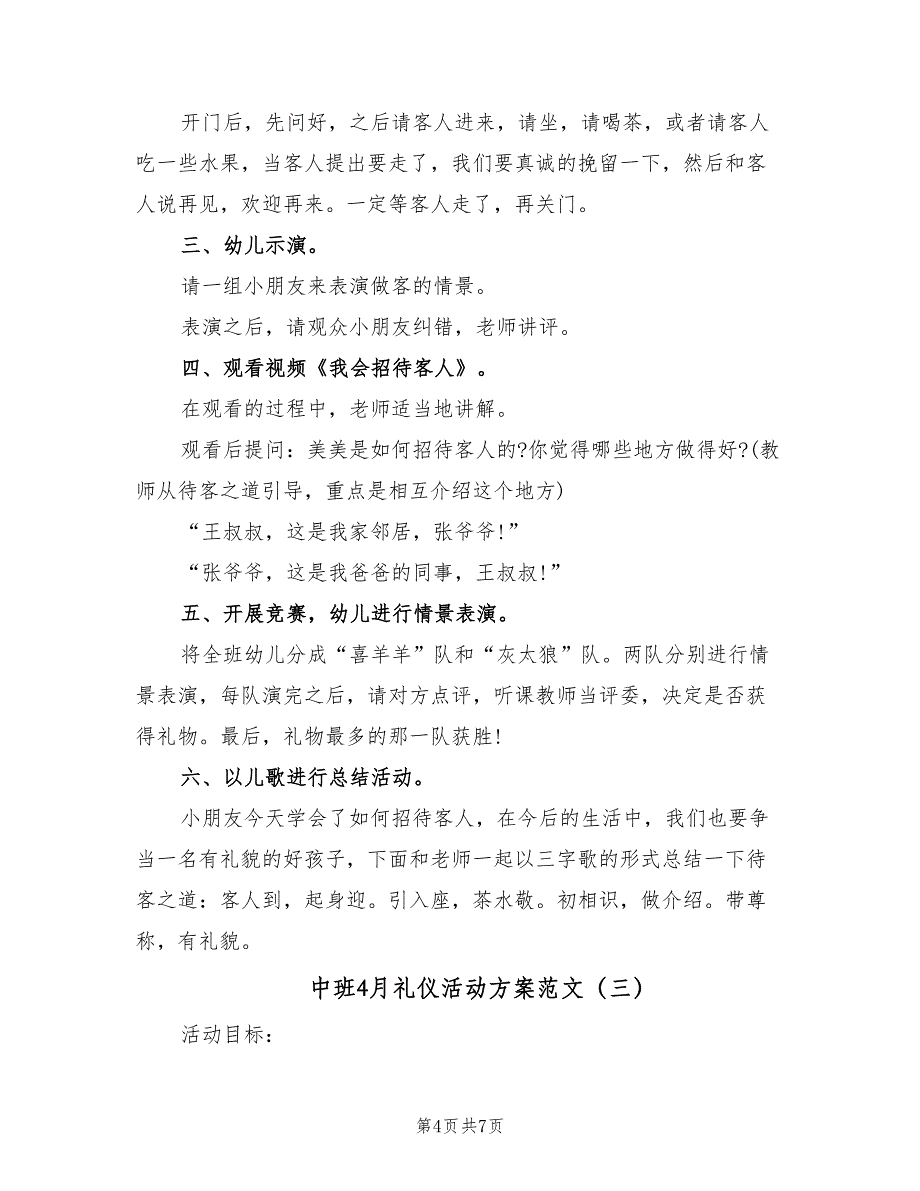 开门后，先问好，之后请客人进来，请坐，请喝茶，或者请客人
吃一些水果，当客人提出要走了，我们要真诚的挽留一下，然后和客
人说再见，欢迎再来。一定等客人走了，再关门。
三、幼儿示演。
请一组小朋友来表演做客的情景。
表演之后，请观众小朋友纠错，老师讲评。
四、观看视频《我会招待客人》。
在观看的过程中，老师适当地讲解。
观看后提问：美美是如何招待客人的?你觉得哪些地方做得好?(教
师从待客之道引导，重点是相互介绍这个地方)
“王叔叔，这是我家邻居，张爷爷!”
“张爷爷，这是我爸爸的同事，王叔叔!”
五、开展竞赛，幼儿进行情景表演。
将全班幼儿分成“喜羊羊”队和“灰太狼”队。两队分别进行情
景表演，每队演完之后，请对方点评，听课教师当评委，决定是否获
得礼物。最后，礼物最多的那一队获胜!
六、以儿歌进行总结活动。
小朋友今天学会了如何招待客人，在今后的生活中，我们也要争
当一名有礼貌的好孩子，下面和老师一起以三字歌的形式总结一下待
客之道：客人到，起身迎。引入座，茶水敬。初相识，做介绍。带尊
称，有礼貌。
中班4月礼仪活动方案范文（三）
活动目标：
第4页 共7页